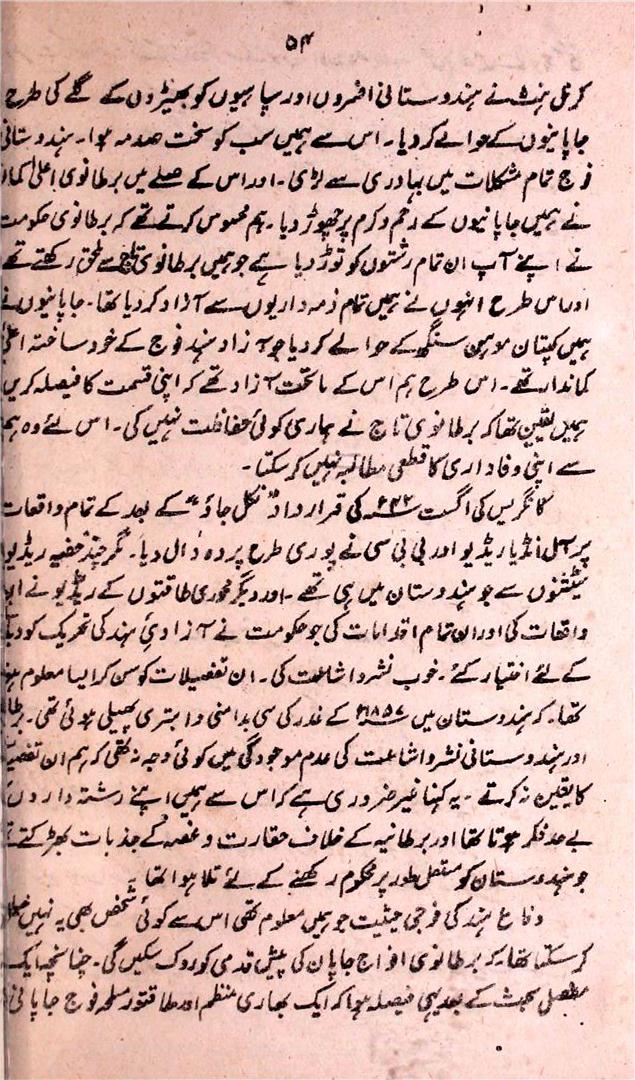 ۵۴
کرنل ہنٹ نے ہندوستانی افسروں اور سپاہیوں کو بھیڑوں کے گلے کی طرح
جاپانیوں کے حوالے کر دیا۔ اس سے ہمیں سب کو سخت صدمہ ہوا۔ ہندوستانی
فوج تمام مشکلات میں بہادری سے لڑی۔ اور اس کے صلے میں برطانوی اعلیٰ
نے ہمیں جاپانیوں کے رحم و کرم پر چھوڑ دیا۔ ہم محسوس کرتے تھے کہ برطانوی حکومت
نے اپنے آپ ان تمام رشتوں کو توڑ دیا ہے جو ہمیں برطانوی تاج سے ملحق رکھتے تھے
اور اس طرح انہوں نے ہمیں تمام ذمہ داریوں سے آزاد کر دیا تھا۔ جاپانیوں نے
ہمیں کپتان موہن سنگھ کے حوالے کر دیا جو آزاد ہند فوج کے خود ساختہ اعلیٰ
کماندار تھے۔ اس طرح ہم اس کے ماتحت آزاد تھے کہ اپنی قسمت کا فیصلہ کریں
ہمیں یقین تھا کہ برطانوی تاج نے ہماری کوئی حفاظت نہیں کی۔ اس لئے وہ ہم
سے اپنی وفاداری کا قطعی مطالبہ نہیں کر سکتا۔
کانگریس کی اگست ۴۲ء کی قرارداد "نکل جاؤ" کے بعد کے تمام واقعات
پر آل انڈیا ریڈیو اور بی بی سی نے پوری طرح پردہ ڈال دیا۔ مگر چند خفیہ ریڈیو
سٹیشنوں سے جو ہندوستان میں ہی تھے۔ اور دیگر محوری طاقتوں کے ریڈیو نے ان
واقعات کی اور ان تمام اقدامات کی جو حکومت نے آزادیٔ ہند کی تحریک کو دبانے
کے لئے اختیار کئے۔ خوب نشر و اشاعت کی۔ ان تفصیلات کو سن کر ایسا معلوم ہوتا
تھا۔ کہ ہندوستان میں ۱۸۵۷ء کے غدر کی سی بدامنی و ابتری پھیلی ہوئی تھی۔
اور ہندوستانی نشر و اشاعت کی عدم موجودگی میں کوئی وجہ نہ تھی کہ ہم ان تفصیلات
کا یقین نہ کرتے۔ یہ کہنا غیر ضروری ہے کہ اس سے ہمیں اپنے رشتہ داروں کا
بے حد فکر ہوتا تھا اور برطانیہ کے خلاف حقارت و غصہ کے جذبات بھڑکتے تھے
جو ہندوستان کو مستقل طور پر محکوم رکھنے کے لئے تلا ہوا تھا۔
دفاع ہند کی فوجی حیثیت جو ہمیں معلوم تھی اس سے کوئی شخص بھی یہ نہیں خیال
کر سکتا تھا کہ برطانوی افواج جاپان کی پیش قدمی کو روک سکیں گی۔ چنانچہ ایک
مفصل بحث کے بعد یہی فیصلہ ہوا کہ ایک بھاری منظم اور طاقتور مسلح فوج جاپانی